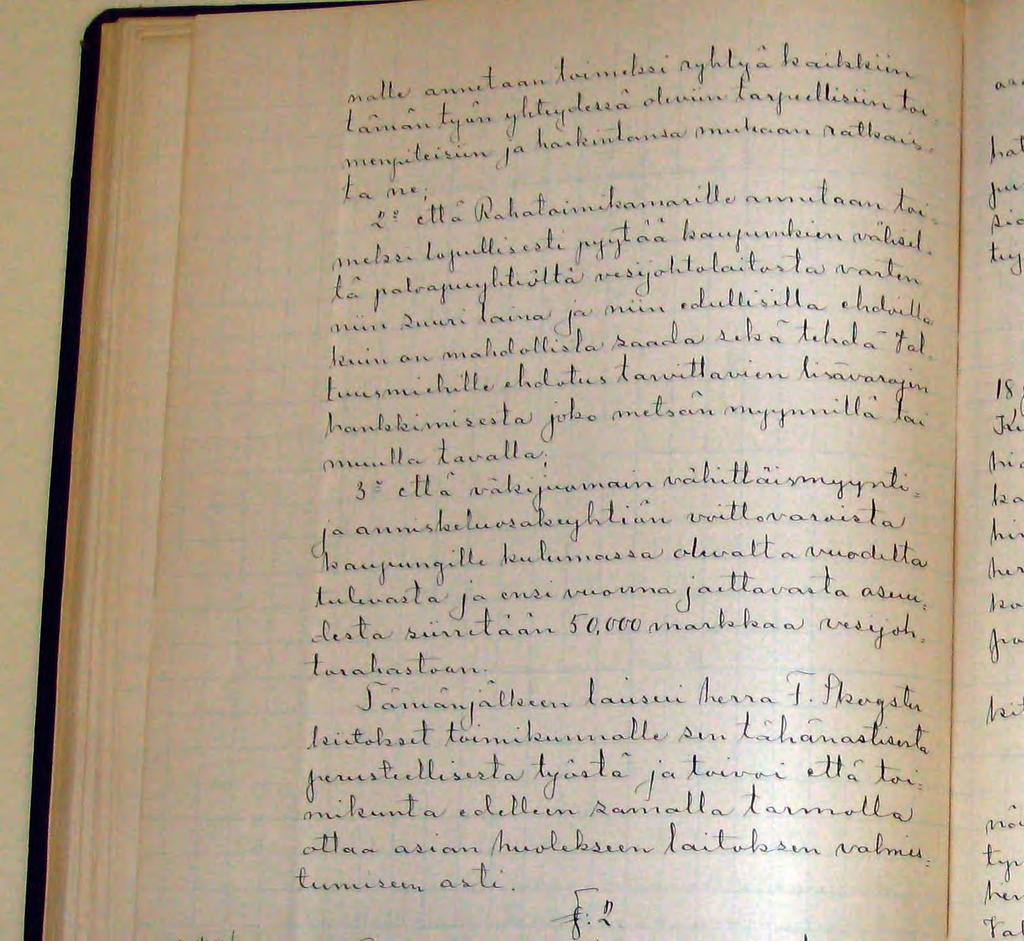 nalle annetaan toimeksi ryhtyä kaikkiin
tämän työn yhteydessä oleviin tarpeellisiin toi-
menpiteisiin ja harkintansa mukaan ratkais-
ta ne;
2:o että Rahatoimikamarille annetaan toi-
meksi lopullisesti pyytää kaupunkien väliseltä
tä paloapuyhtiöltä vesijohtolaitosta varten
niin suuri laina ja niin edullisilla ehdoilla
kuin on mahdollista saada sekä tehdä Val-
tuusmiehille ehdotus tarvittavien lisävarojen
hankkimisesta joko metsän myynnillä tai
muulla tavalla;
3:o että väkijuomain vähittäismyynti-
ja anniskeluosakeyhtiön voittovaroista
kaupungille kulumassa olevalta vuodelta
tulevasta ja ensi vuonna jaettavasta osuu-
desta siirretään 50,000 markkaa vesijoh-
torahastoon.
Tämänjälkeen lausui herra F. Skogster
kiitokset toimikunnalle sen tähänastisesta
perusteellisesta työstä ja toivoi että toi-
mikunta edelleen samalla tarmolla
ottaa asian huolekseen laitoksen valmis-
tumiseen asti.
§. 2.